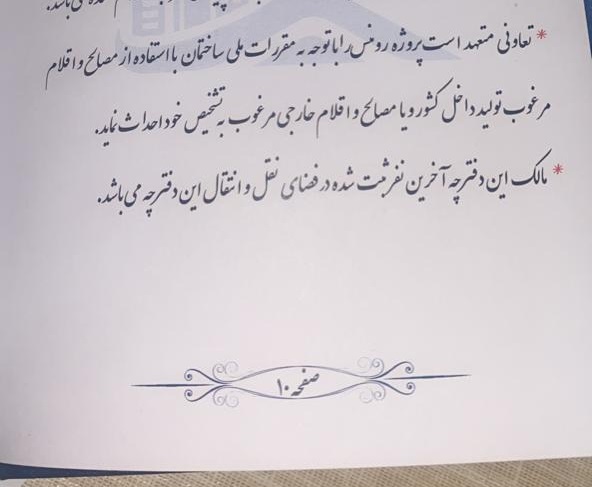 می‌باشد.
* تعاونی متعهد است پروژه رومنس را با توجه به مقررات ملی ساختمان با استفاده از مصالح و اقلام
مرغوب تولید داخل کشور و یا مصالح و اقلام خارجی مرغوب به تشخیص خود احداث نماید.
* مالک این دفترچه آخرین نفر ثبت شده در فضای نقل و انتقال این دفترچه می باشد.
صفحه ۱۰